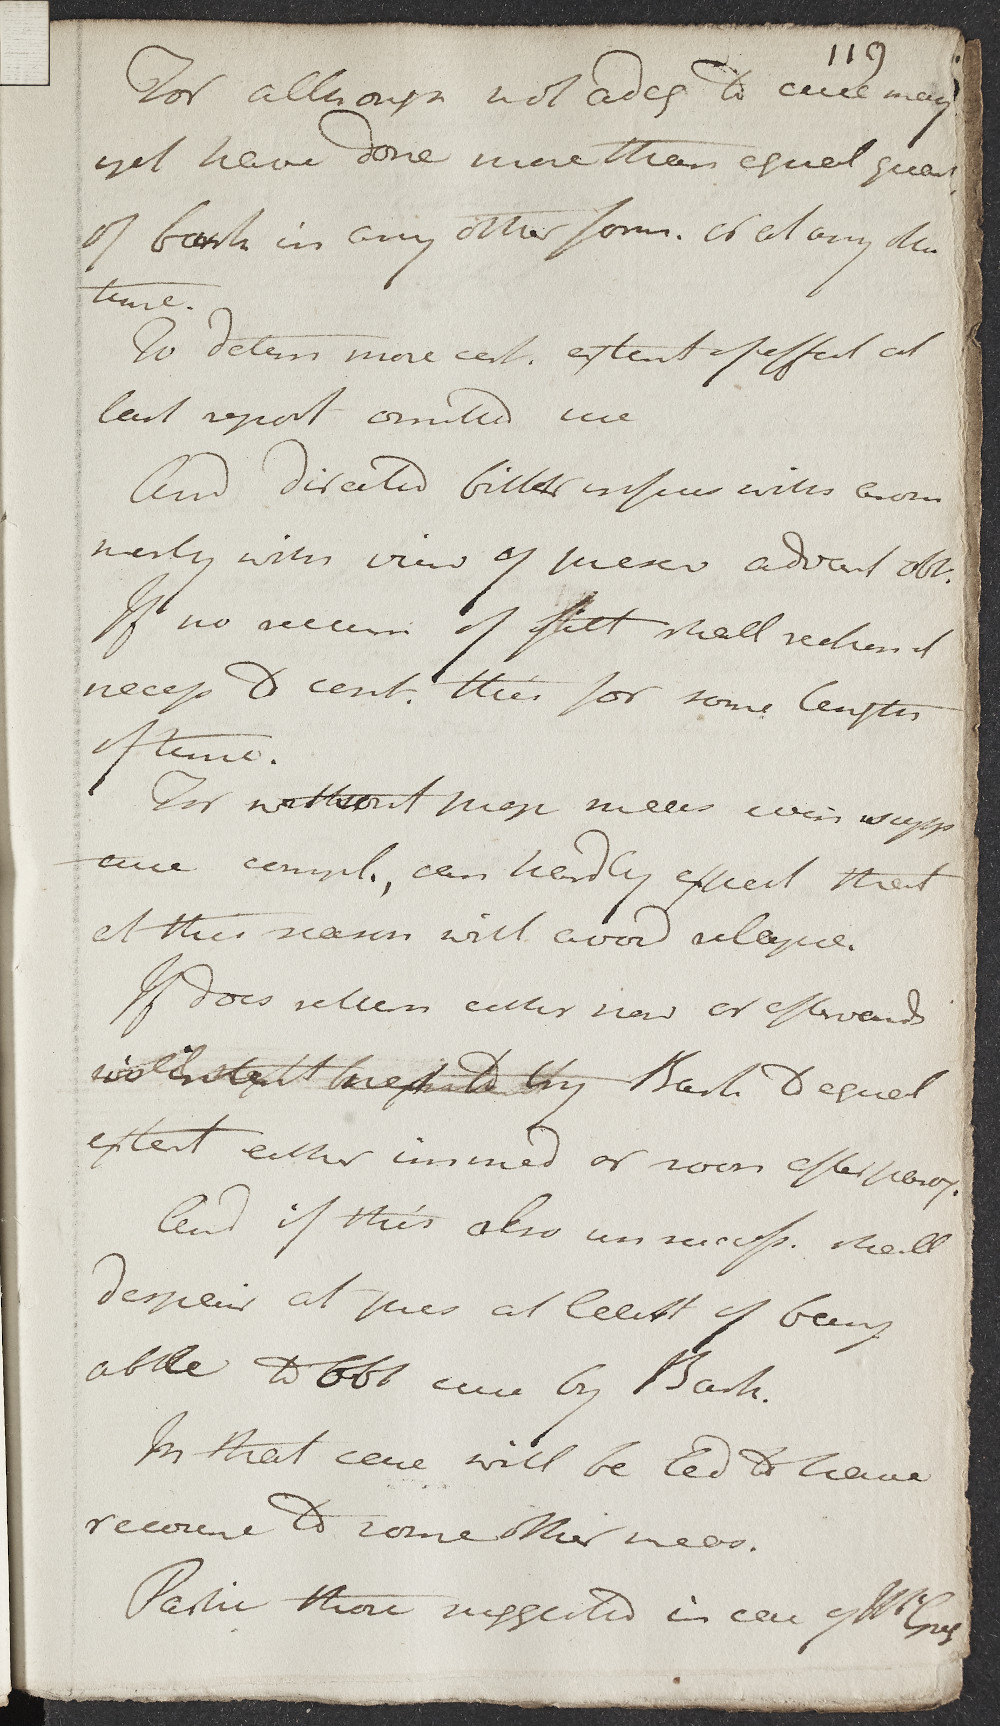 119
For although not adeq to cure may
yet have done more than equal quant
of bark in any other form. or at any other
time.
To determ more cert. extent of effect at
last report omitted use
And directed bitter infus with arom
merly with view of preserv advant obt.
If no recurr of fitt shall rechon it
necess to cont. this for some length
of time.
For without prop means even supp
cure compl., can hardly expect that
at this season will avoid relapse.
If does return either now or afterwards
will by Bark to equal
extent either immed or soon after parox.
And if this also unsuccess. shall
despair at pres at least of being
able to obt cure by Bark.
In that case will be led to have
recourse to some other meas.
Partic those suggested in case of McGreg